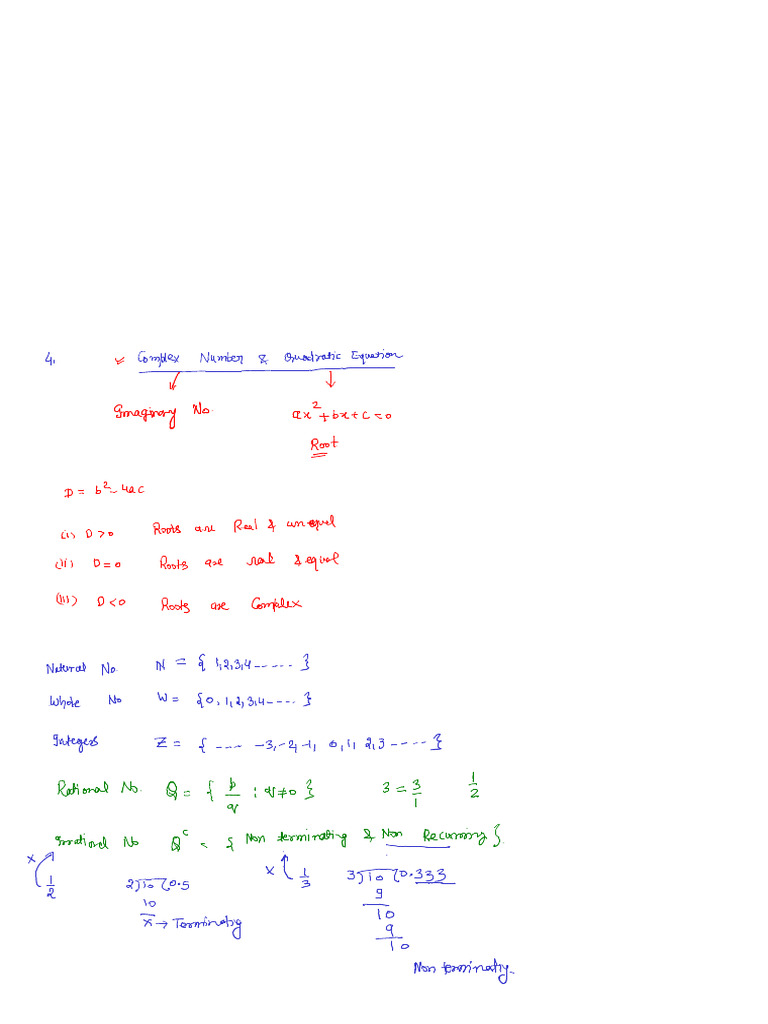 4. Complex Number & Quadratic Equation
Imaginary No. ax²+bx+c=0
Root
D = b²-4ac
(i) D>0 Roots are Real & unequal
(ii) D=0 Roots are real & equal
(iii) D<0 Roots are Complex
Natural No. N = { 1,2,3,4------ }
Whole No W = {0,1,2,3,4------}
Integers Z = { ---- -3,-2,-1, 0,1,2,3-----}
Rational No. Q = { p/q : q≠0 } 3 = 3/1 1/2
Irrational No Qᶜ = { Non terminating & Non Recurring }
x 1/2 2)10(0.5 x 1/3 3)10(0.333
10 9
x → Terminating 10
9
10
Non terminating.